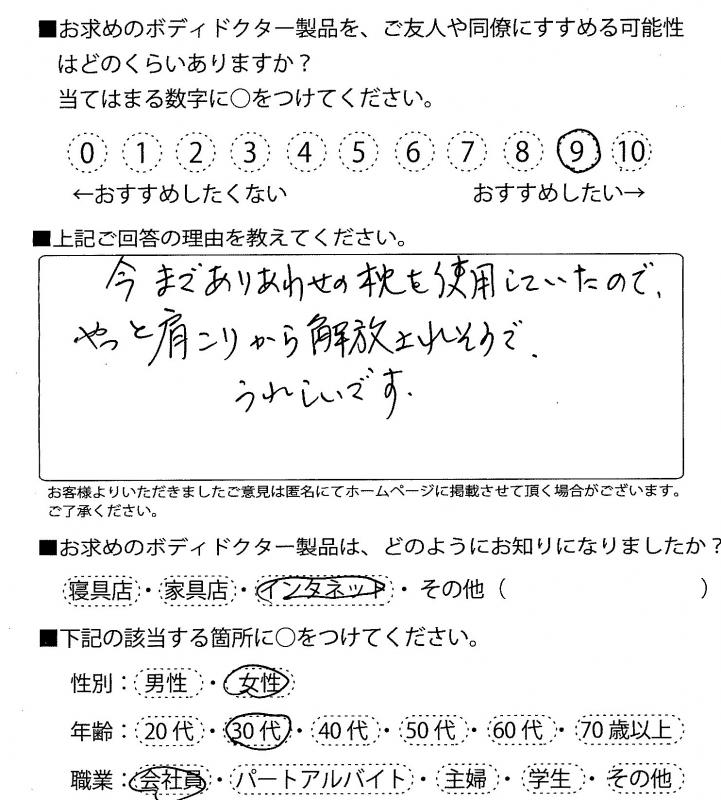 ■お求めのボディドクター製品を、ご友人や同僚にすすめる可能性
はどのくらいありますか？
当てはまる数字に○をつけてください。
0 1 2 3 4 5 6 7 8 9 10
←おすすめしたくない おすすめしたい→
■上記ご回答の理由を教えてください。
今まであり あわせの枕を使用していたので、
やっと肩こりから解放されそうで、
うれしいです.
お客様よりいただきましたご意見は匿名にてホームページに掲載させて頂く場合がございます。
ご了承ください。
■お求めのボディドクター製品は、どのようにお知りになりましたか？
寝具店・家具店・インタネット・その他（ ）
■下記の該当する箇所に○をつけてください。
性別：男性・女性
年齢：20代・30代・40代・50代・60代・70歳以上
職業：会社員・パートアルバイト・主婦・学生・その他